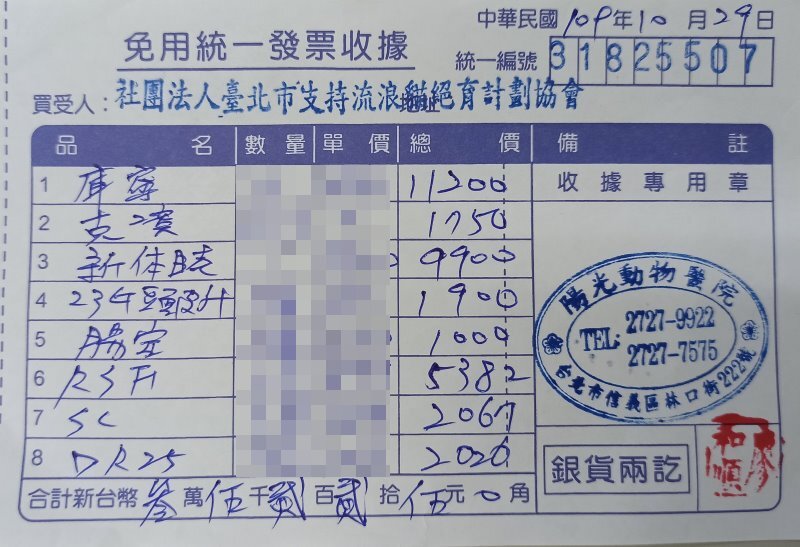 中華民國109年10月29日
免用統一發票收據
統一編號 31825507
買受人：社團法人臺北市支持流浪貓絕育計劃協會
地址
品名 數量 單價 總價 備註
收據專用章
1 庫寧 11200
2 1750
3 新体睦 9900
4 23G頭皮針 1900
5 1000
6 5382
7 SC 2067
8 DR25 2026
陽光動物醫院
TEL: 2727-9922
2727-7575
台北市信義區林口街222號
銀貨兩訖
和順
合計新台幣參萬伍千貳百貳拾伍元0角